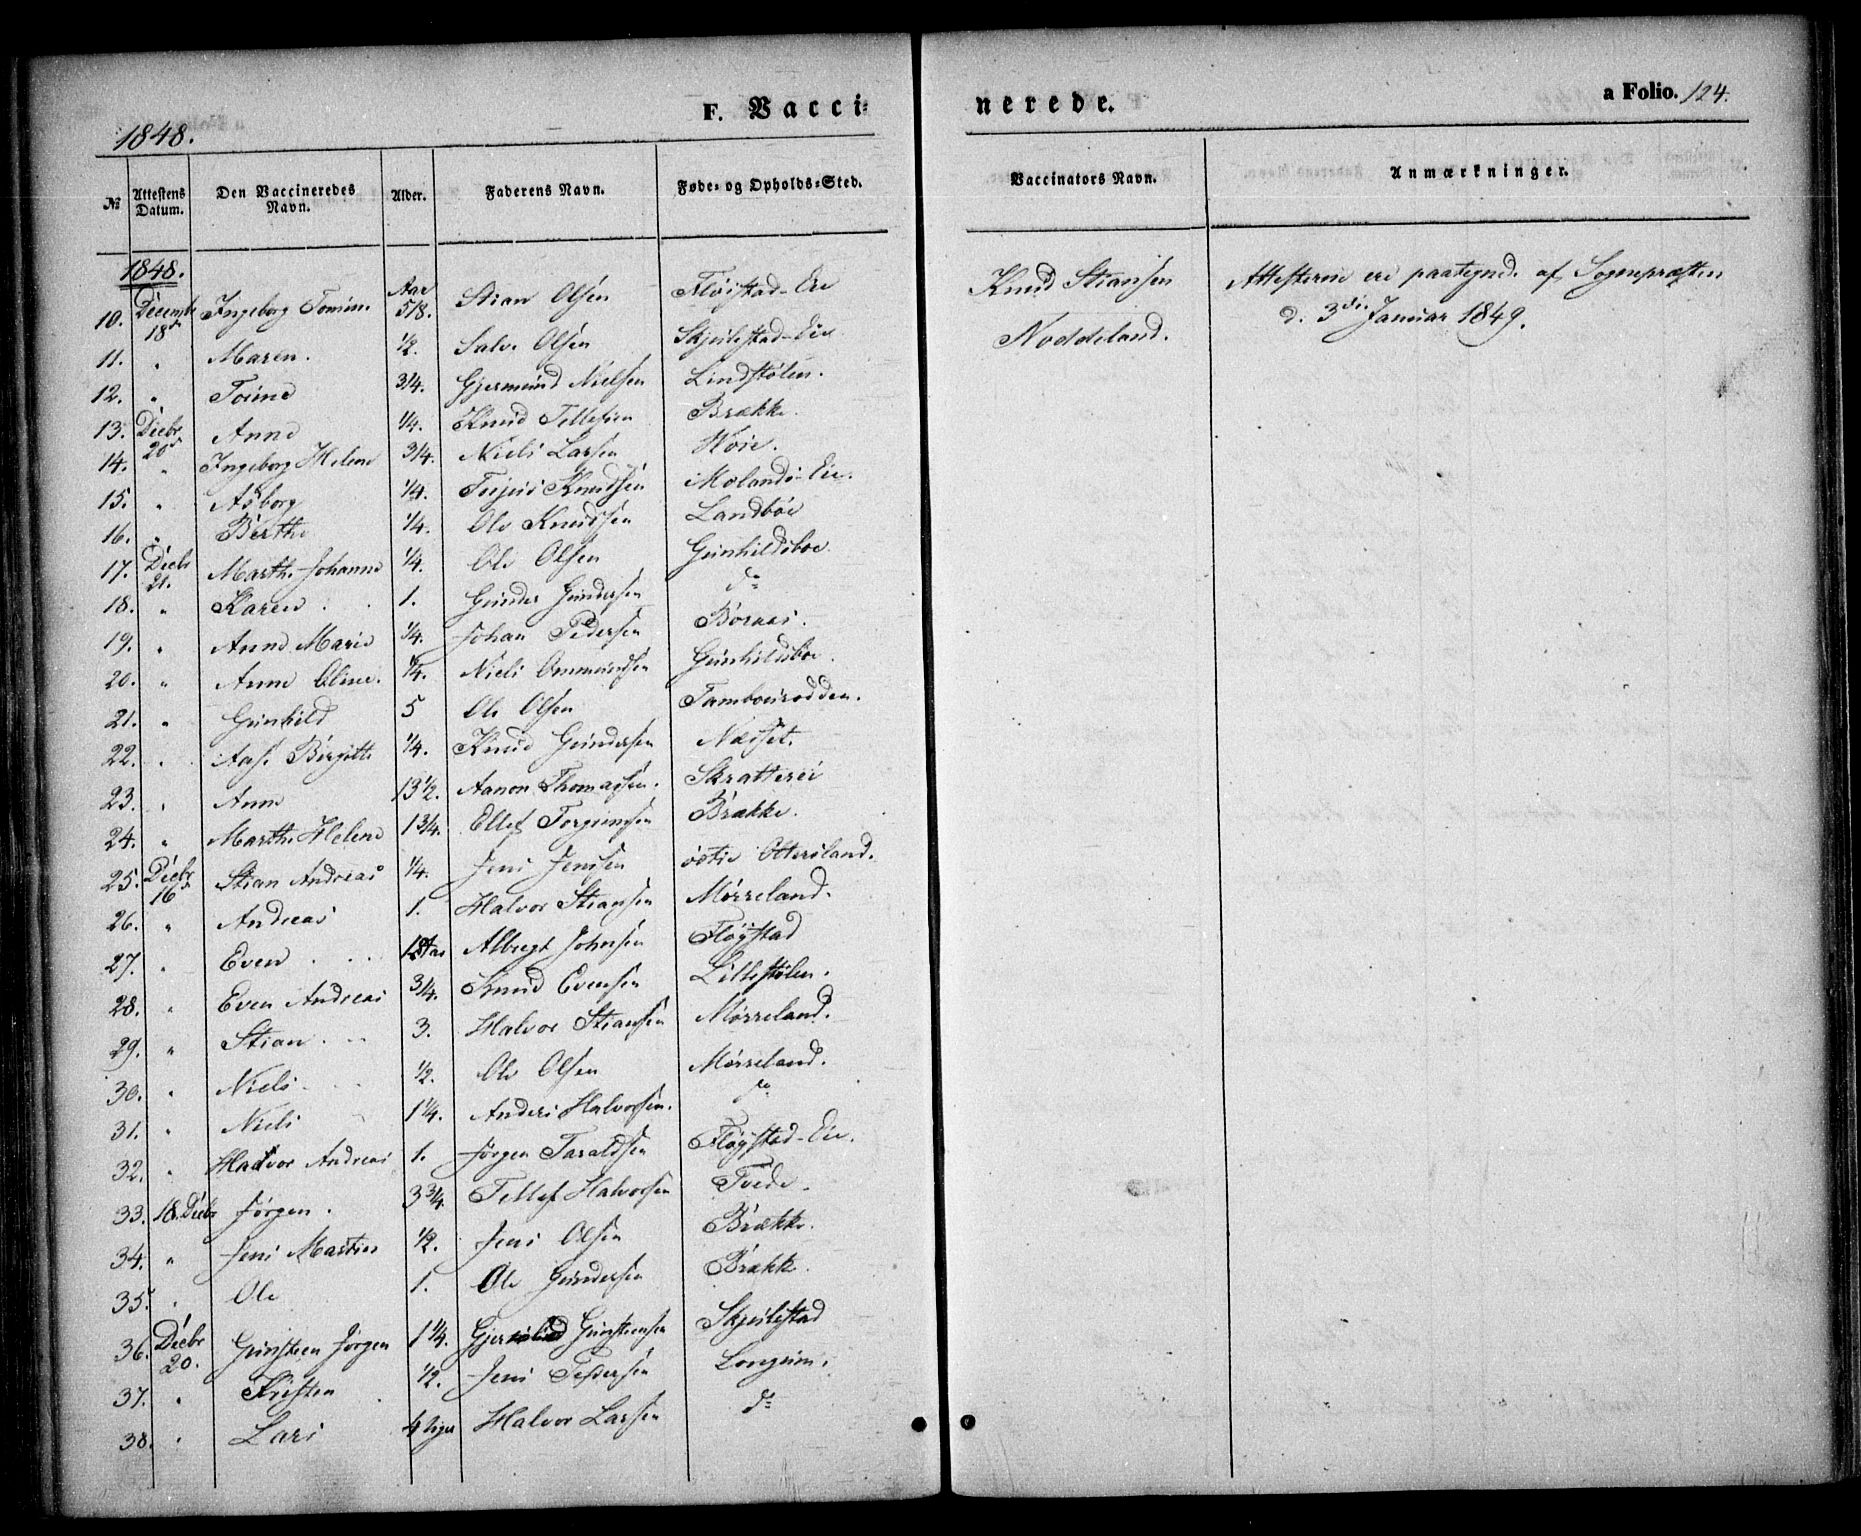 1848.
F. Vacci-
nerede.
a Folio. 124.
№
Attestens Datum.
Den Vaccineredes Navn.
Alder.
Faderens Navn.
Føde- og Opholds-Sted.
Vaccinators Navn.
Anmærkninger.
1848.
10. Decembr 18d Ingeborg Tomine. Aar 5/8. Stian Olsen Fløistad-Eie Knud Stiansen Attesterne ere paategnede af Sognepræsten
11. " Maren. 1/2. Salve Olsen Skjulestad-Eie Noddeland. d. 3die Januar 1849.
12. " Tomine 3/4. Gjermund Nielsen Lindstølen.
13. Decbr 20d Anne 1/4. Knud Tellefsen Brække.
14. " Ingeborg Helene 3/4. Niels Larsen Høie.
15. " Asborg 1/4. Terjus Knudsen Molands-Eie.
16. " Berthe 1/4. Ole Knudsen Landbøe
17. Decbr 21. Marthe Johanne 1/4. Ole Olsen Gunhildsboe.
18. " Karen 1. Gunder Gundersen do
19. " Anne Marie 1/4. Johan Pedersen Boraas.
20. " Anne Oline. 1/4. Niels Ommundsen Gunhildsboe.
21. " Gunhild 5 Ole Olsen Tambourodden.
22. " Aase Birgitte 1/4. Knud Gundersen Næsset.
23. " Anne 13 1/2. Aanon Thomassen. Skratterei
24. " Marthe Helene 1 3/4. Ellef Torgrimsen Brække.
25. Decbr 16d Stian Andreas 1/4. Jens Jensen østre Ottersland.
26. " Andreas 1. Halvor Stiansen Mørreland.
27. " Even Albregt Johnsen Fløystad
28. " Even Andreas 3/4. Knud Evensen Lillestølen.
29. " Stian 3. Halvor Stiansen Mørreland.
30. " Niels 1/2. Ole Olsen Mørreland.
31. " Niels 1 1/4. Anders Halvorsen. do
32. " Halvor Andreas 1. Jørgen Taraldsen Fløystad-Eie.
33. 18. Decbr Jørgen. 3 3/4. Tellef Halvorsen Tvede.
34. " Jens Martin 1/2. Jens Olsen Brække.
35. " Ole 1. Ole Gundersen Brække.
36. Decbr 20. Gunsteen Jørgen 1 1/4. Gjermund Gunsteensen Skjulestad
37. " Kristen 1/2. Jens Pedersen Longum.
38. " Lars 4 Uger Halvor Larsen do